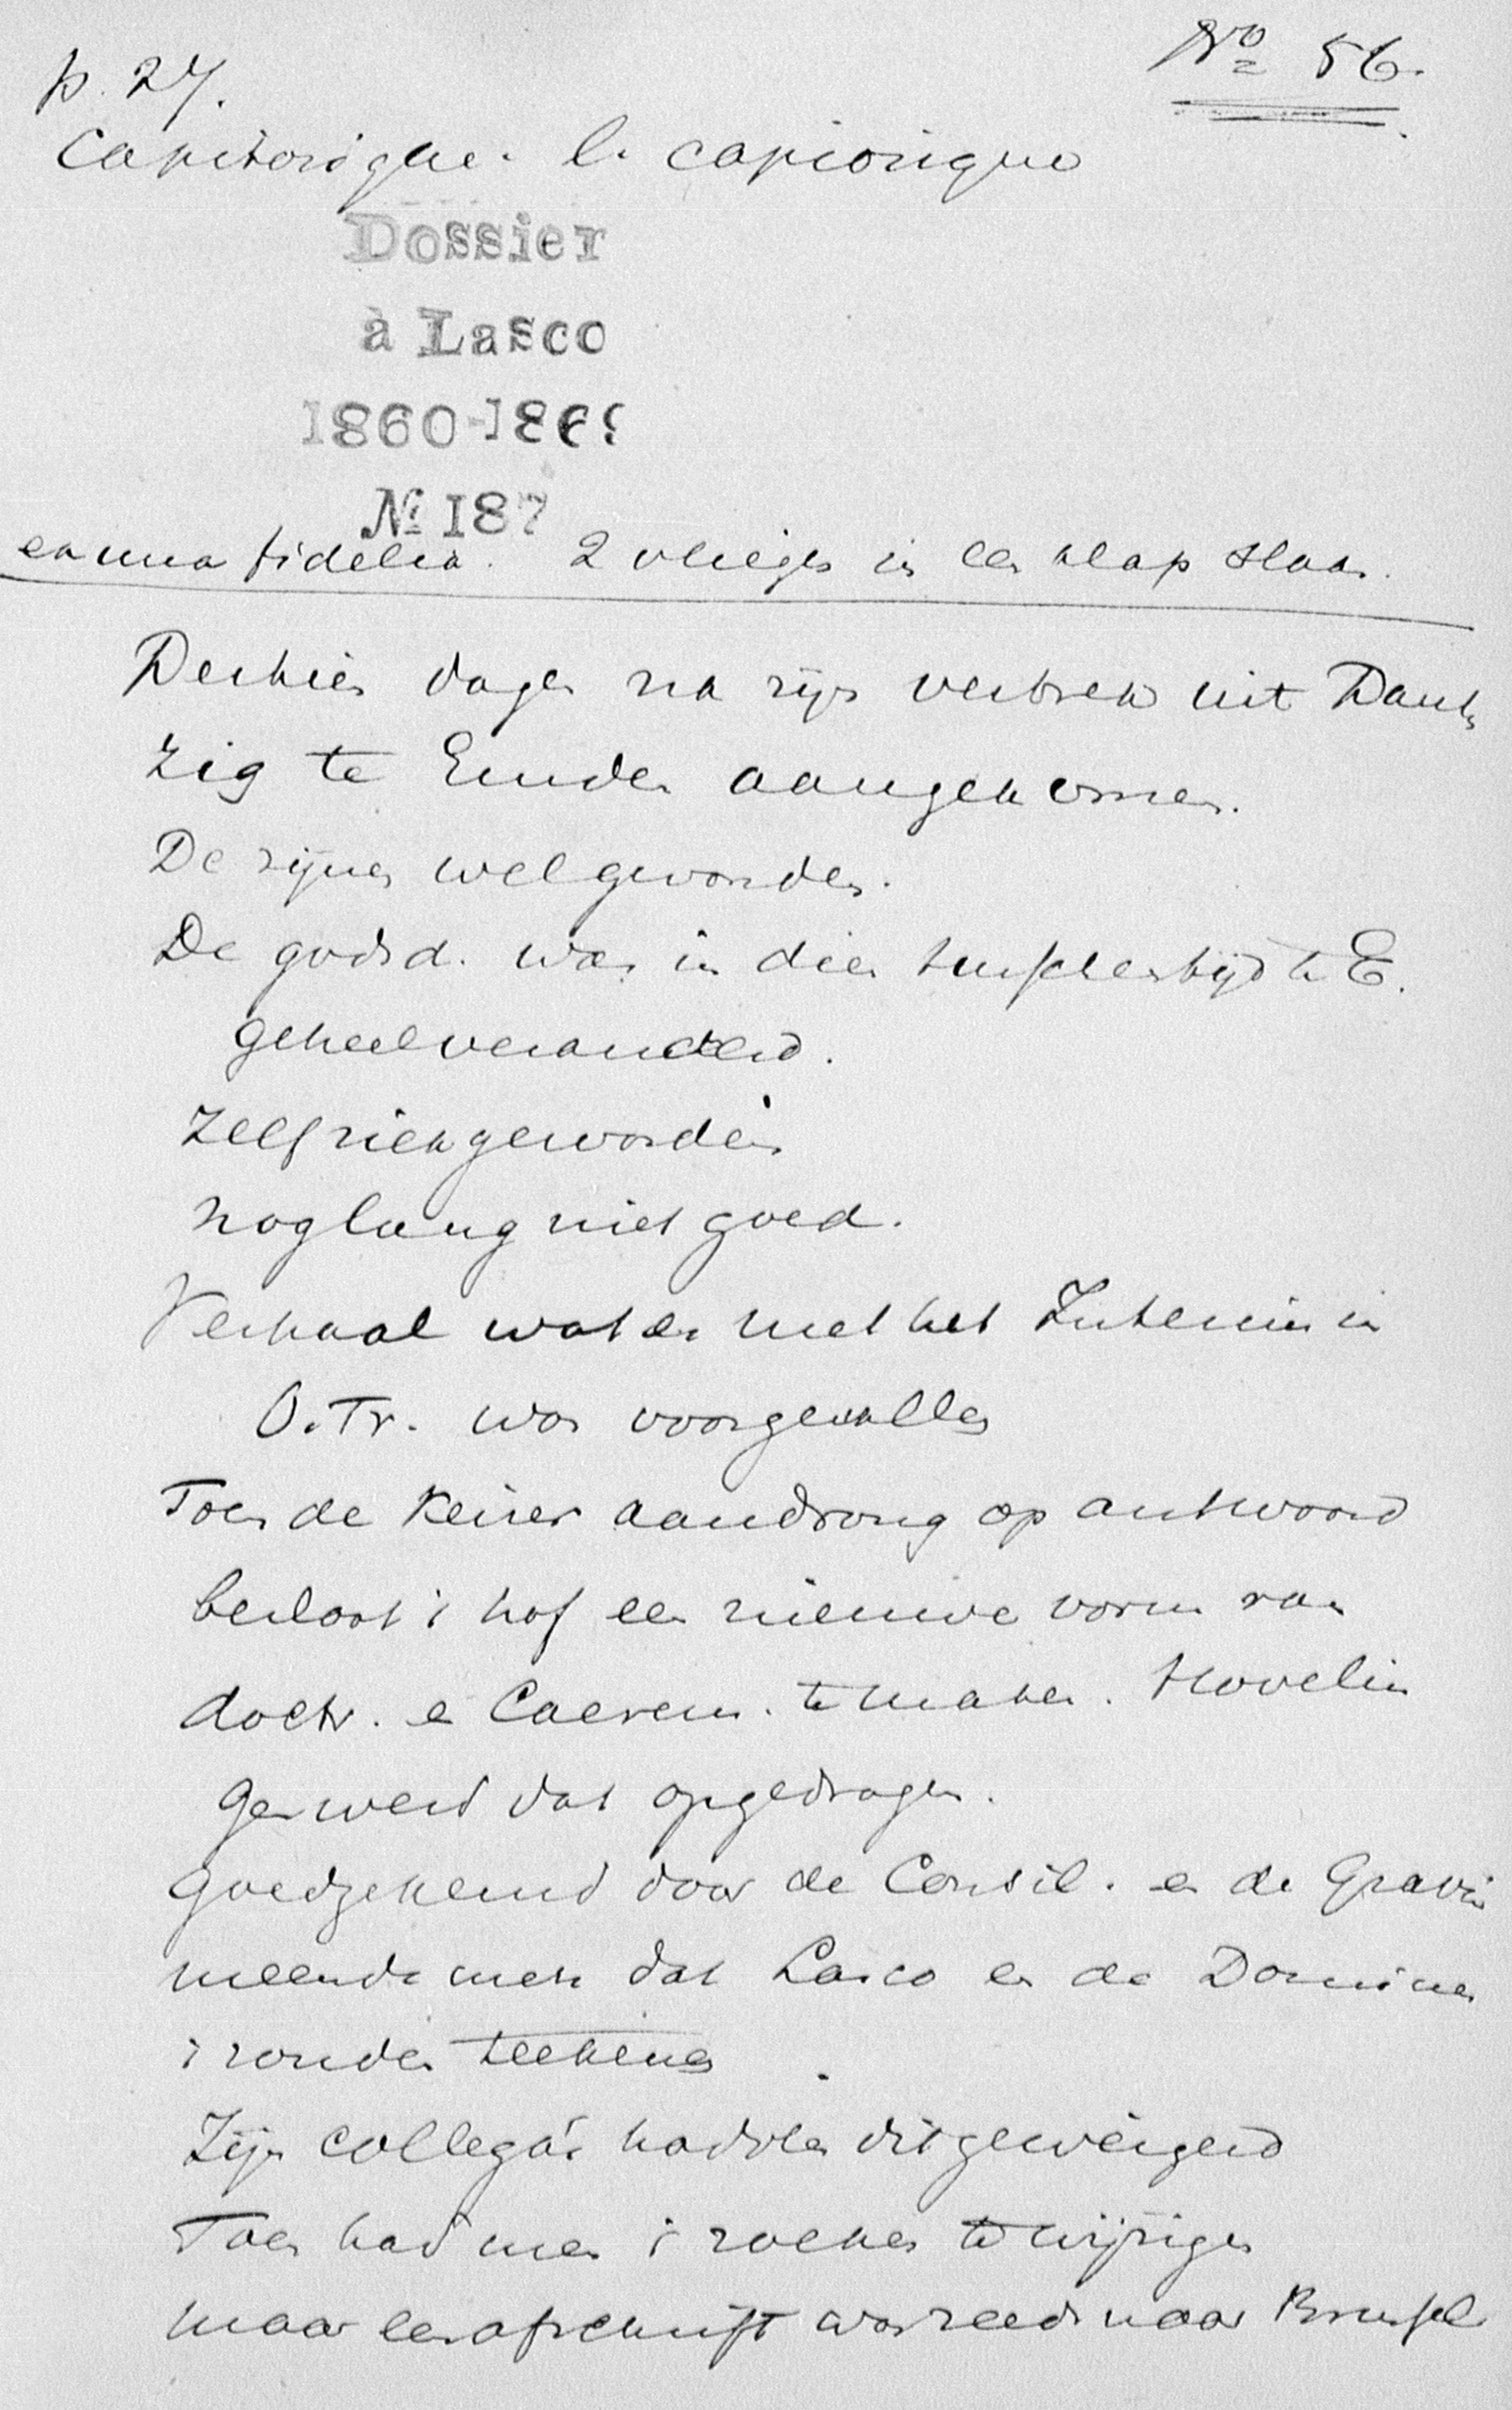 p. 27.
No 56.
Capitorigue. l. capiorique
Dossier
à Lasco
1860-186
No 187
ex una fidelia. 2 vliegen in een klap slaan.
Dertien dagen na zijn vertrek uit Dant
zig te Emden aangekomen.
De zijnen wel gevonden.
De godsd. was in dien tusschentijd te E.
geheel veranderd.
Zelf ziek geworden
nog lang niet goed.
Verhaal wat er met het Interim in
O. Fr. was voorgevallen
Toen de Keizer aandrong op antwoord
besloot 't hof een nieuwe vorm van
doctr. e Caerem. te maken. Hovelin
gen werd dat opgedragen.
Goedgekeurd door de Consil. en de Gravin
meende men dat Lasco en de Dominees
't zouden teekenen
Zijn collega's hadden dit geweigerd
Toen had men 't zoeken te wijzigen
maar een afschrift was reeds naar Brussel